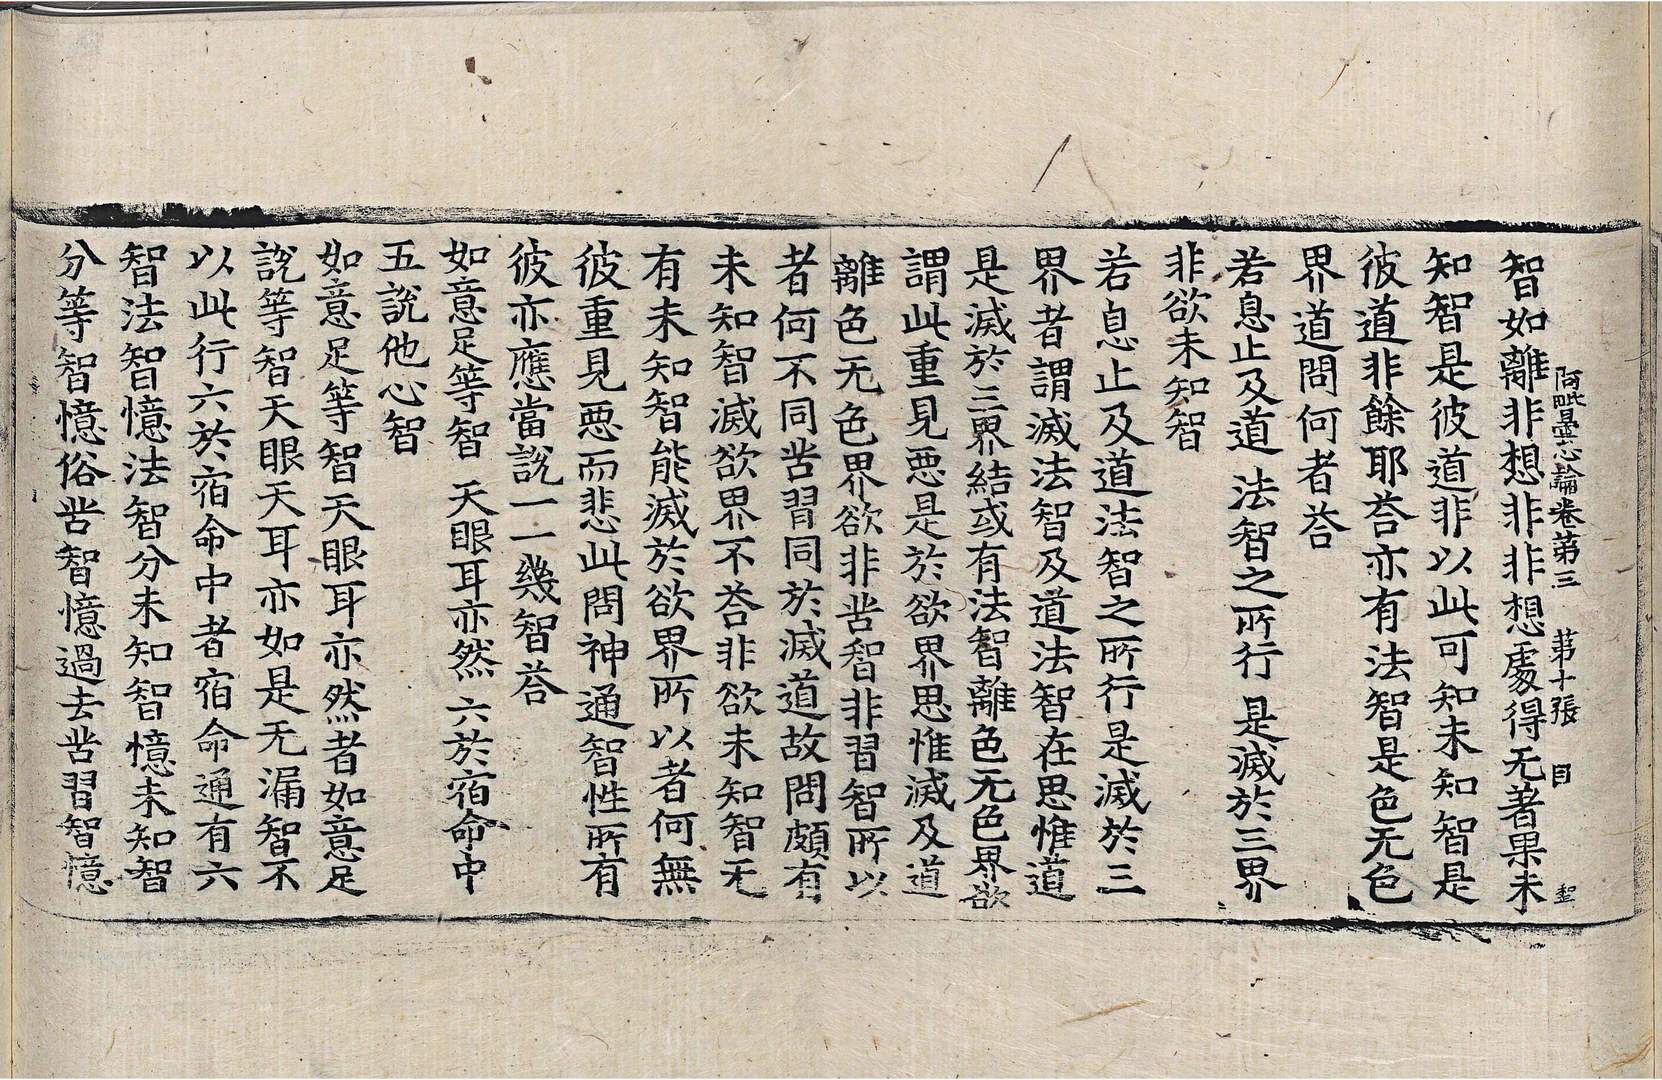 阿毗曇心論卷第三　第十張　目
智如離非想非非想處得无著果未
知智是彼道非以此可知未知智是
彼道非餘耶荅亦有法智是色无色
界道問何者荅
若息止及道　法智之所行　是滅於三界
非欲未知智
若息止及道法智之所行是滅於三
界者謂滅法智及道法智在思惟道
是滅於三界結或有法智離色无色界欲
謂此重見惡是於欲界思惟滅及道
離色无色界欲非苦智非習智所以
者何不同苦習同於滅道故問頗有
未知智滅欲界不荅非欲未知智无
有未知智能滅於欲界所以者何無
彼重見惡而悲此問神通智性所有
彼亦應當說一一幾智荅
如意足等智　天眼耳亦然　六於宿命中
五說他心智
如意足等智天眼耳亦然者如意足
說等智天眼天耳亦如是无漏智不
以此行六於宿命中者宿命通有六
智法智憶法智分未知智憶未知智
分等智憶俗苦智憶過去苦習智憶